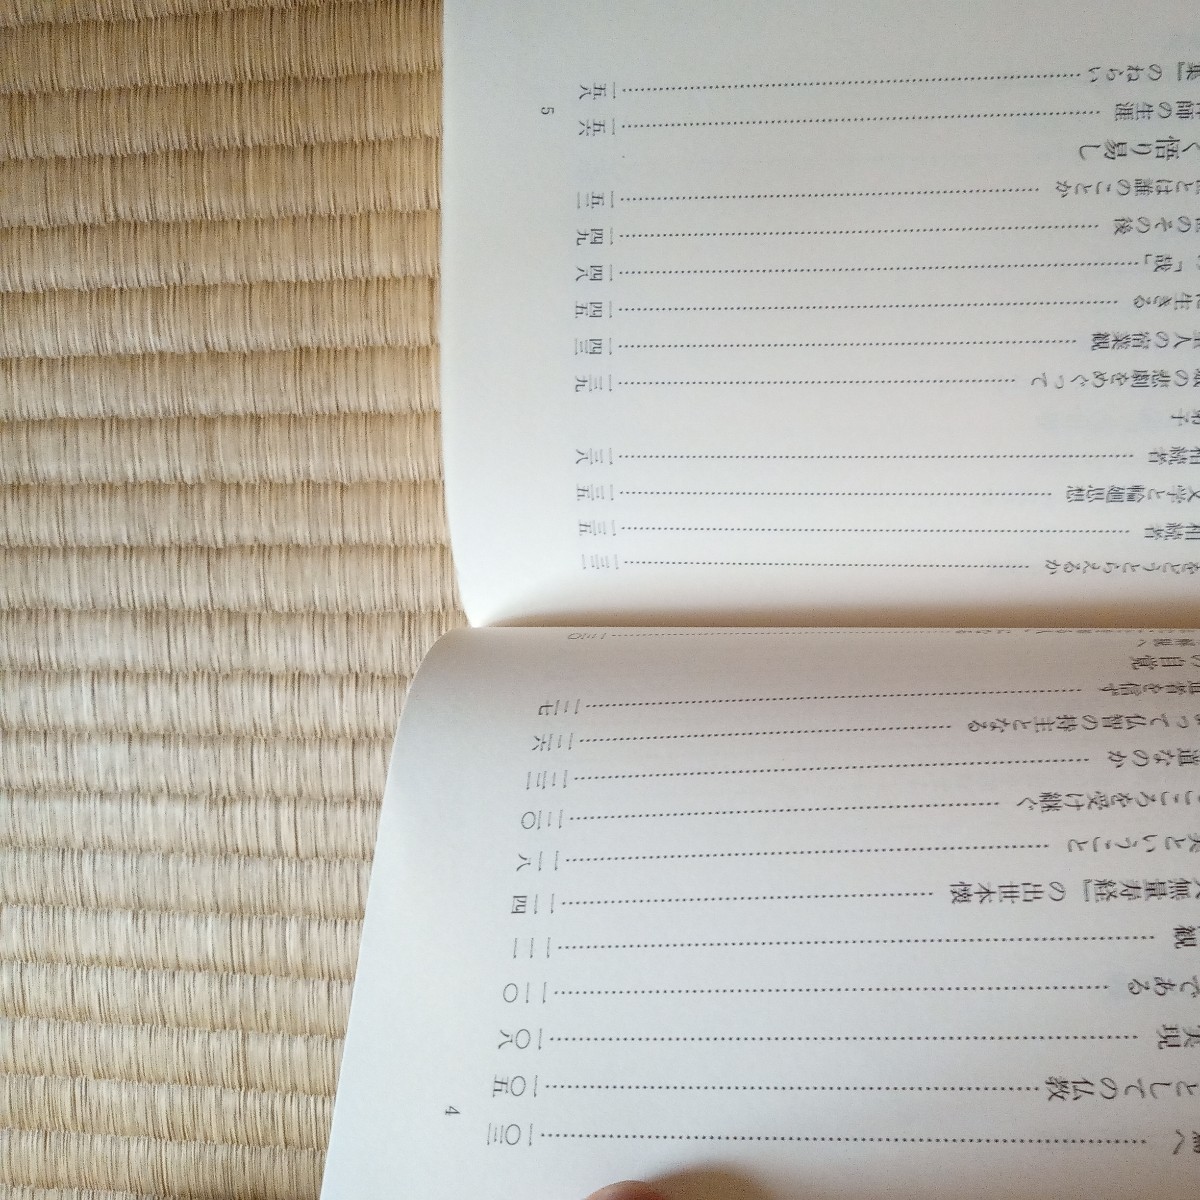 へ……一〇三
としての仏教……一〇五
実現……一〇八
である……一一〇
観……一一二
無量寿経』の出世本懐……一一四
ということ……一一八
こころを受け継ぐ……一二〇
道なのか……一二三
って仏智の持主となる……一二六
者を信ず……一二七
の自覚
……一三〇
4
をどうとらえるか……一三二
相続者……一三五
文学と輪廻思想……一三五
相続者……一三八
子
の悲劇をめぐって……一三九
人の宿業観……一四三
生きる……一四五
「哉」……一四八
のその後……一四九
とは誰のことか……一五二
く悟り易し
師の生涯……一五六
集』のねらい……一五八
5